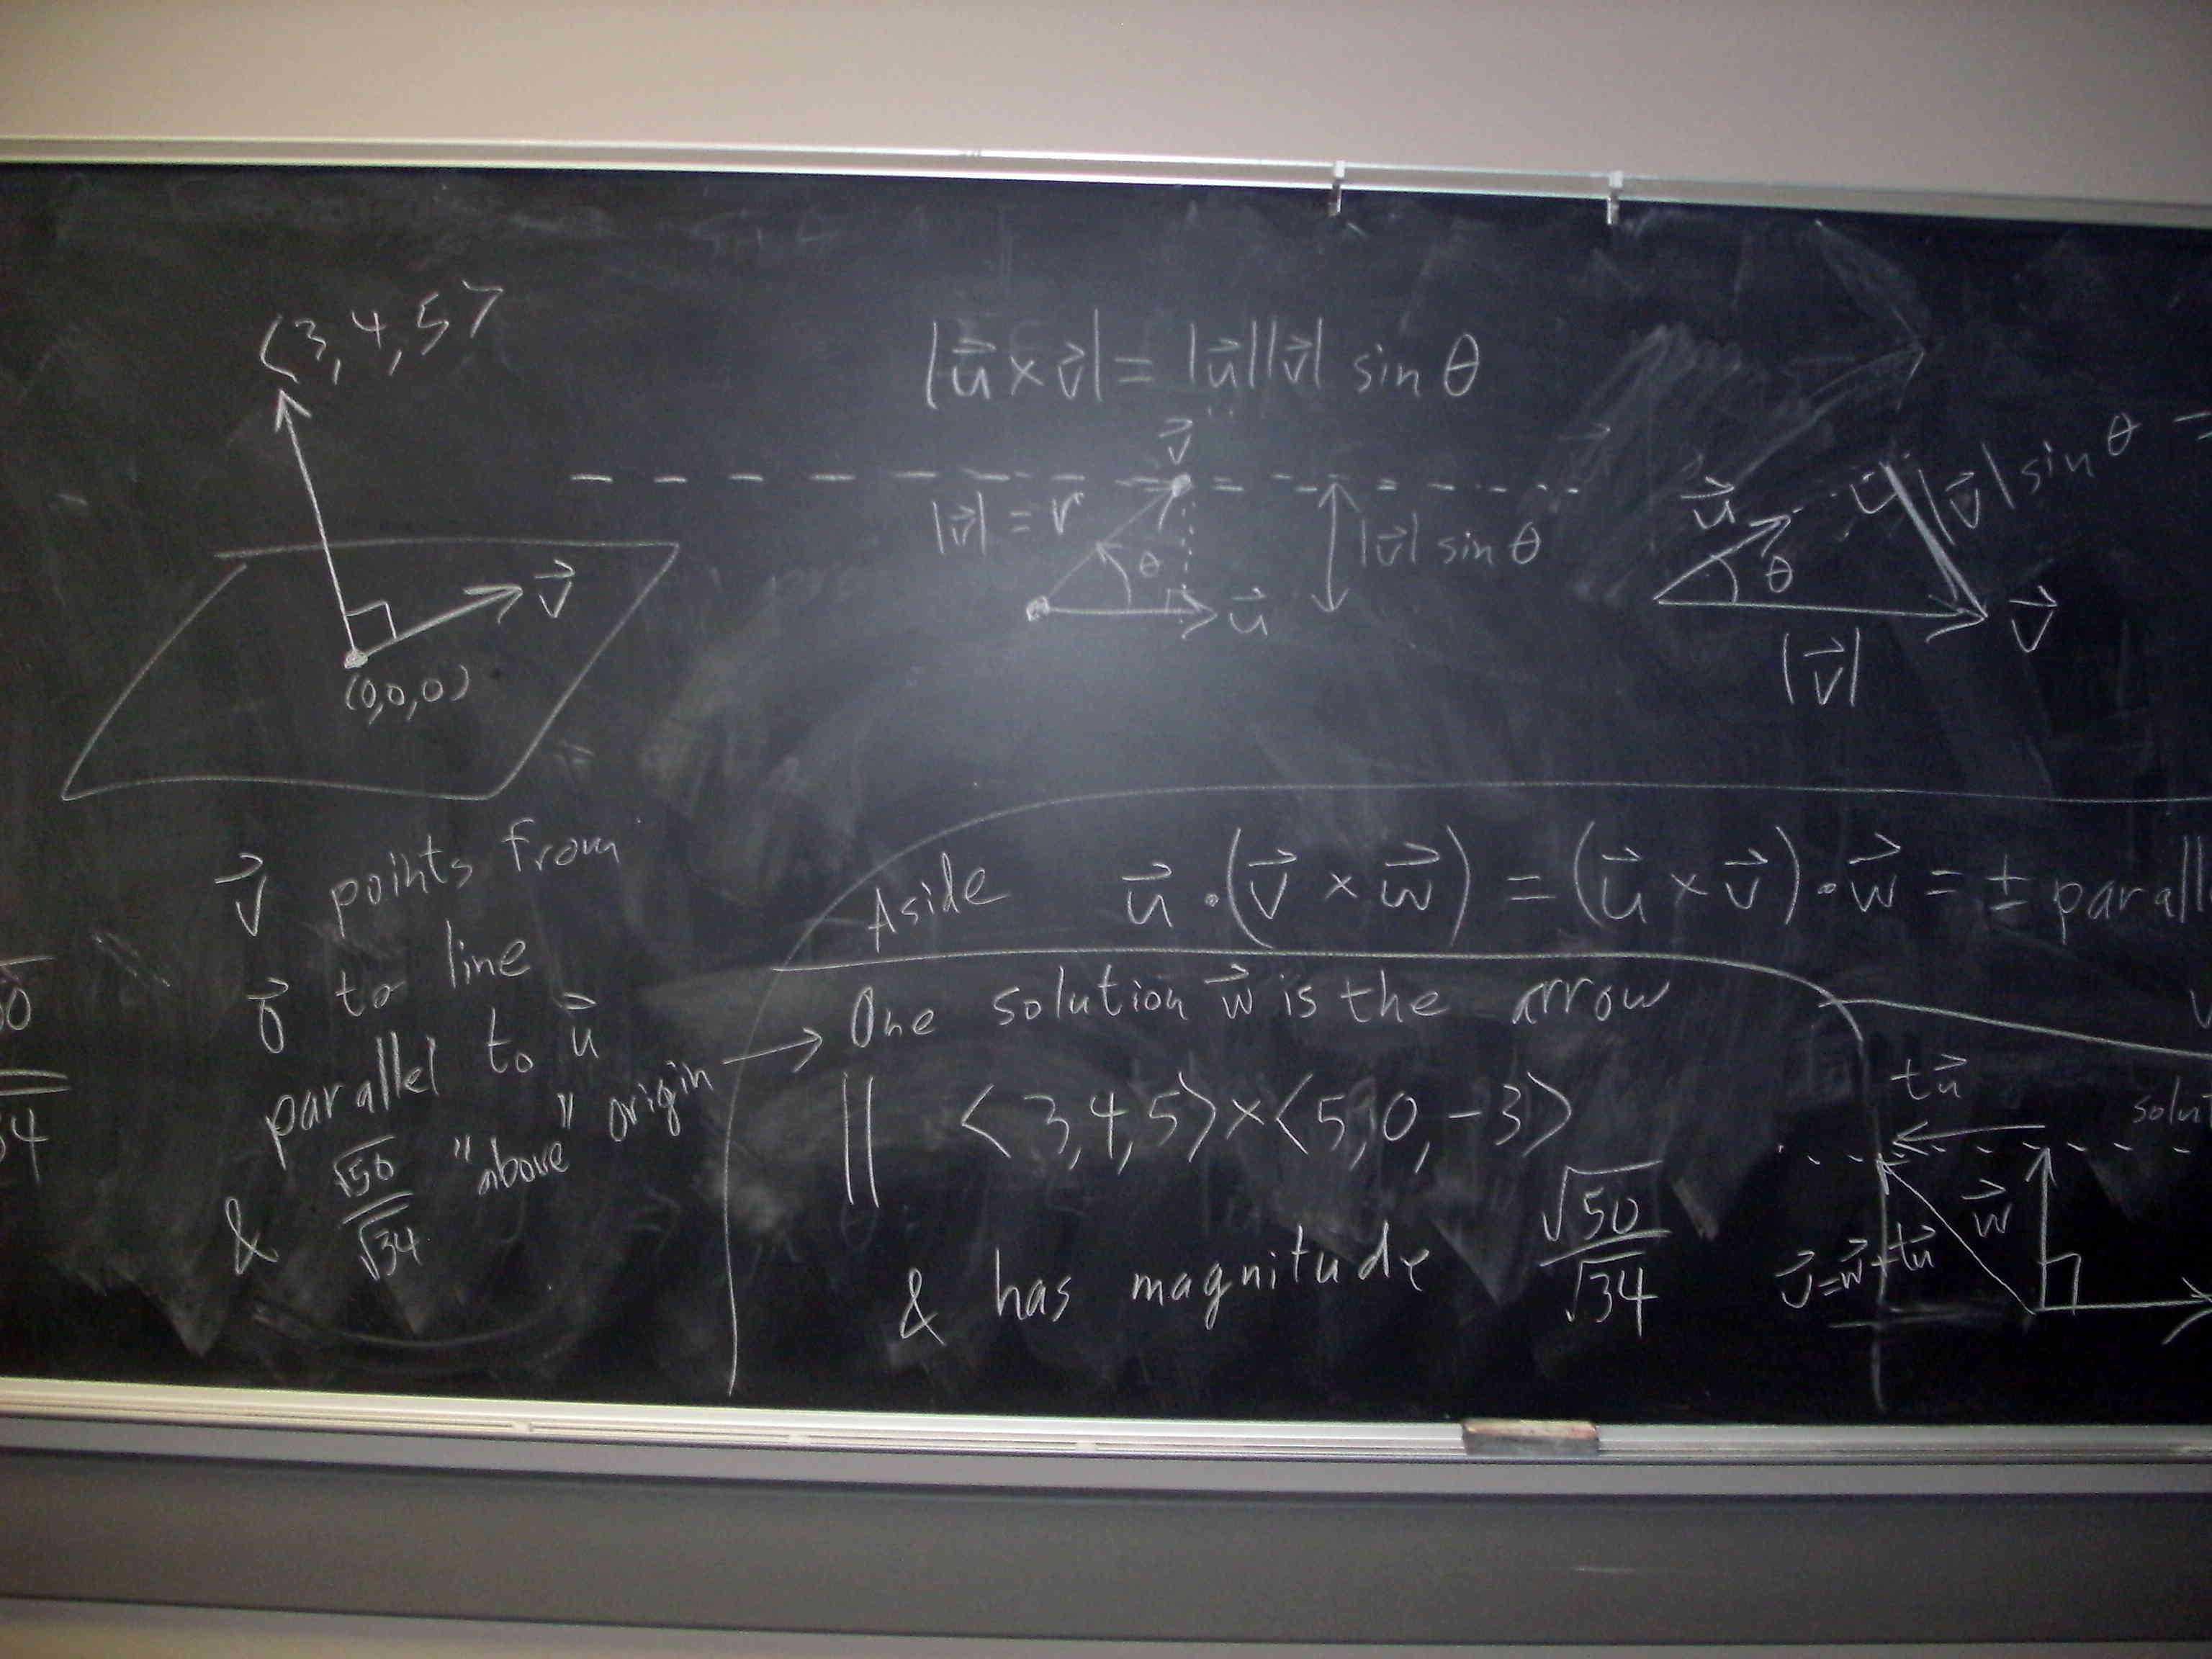 ⟨3,4,5⟩
v⃗
(0,0,0)
|u⃗ × v⃗| = |u⃗||v⃗| sin θ
v⃗
|v⃗| = r
θ
|v⃗| sin θ
u⃗
u⃗
θ
|v⃗| sin θ
v⃗
|v⃗|
v⃗ points from
0⃗ to line
parallel to u⃗
& √50/√34 "above" origin
Aside u⃗ · (v⃗ × w⃗) = (u⃗ × v⃗) · w⃗ = ±
→ One solution w⃗ is the arrow
|| ⟨3,4,5⟩×⟨5,0,-3⟩
& has magnitude √50/√34
tu⃗
w⃗
v⃗=w⃗+tu⃗